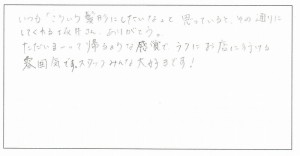 いつも「こういう髪形にしたいな」って思っていると、その通りに
してくれる坂井さん、ありがとう。
ただいまーって帰るような感覚で、ラフにお店にいける
雰囲気です。スタッフみんな大好きです！